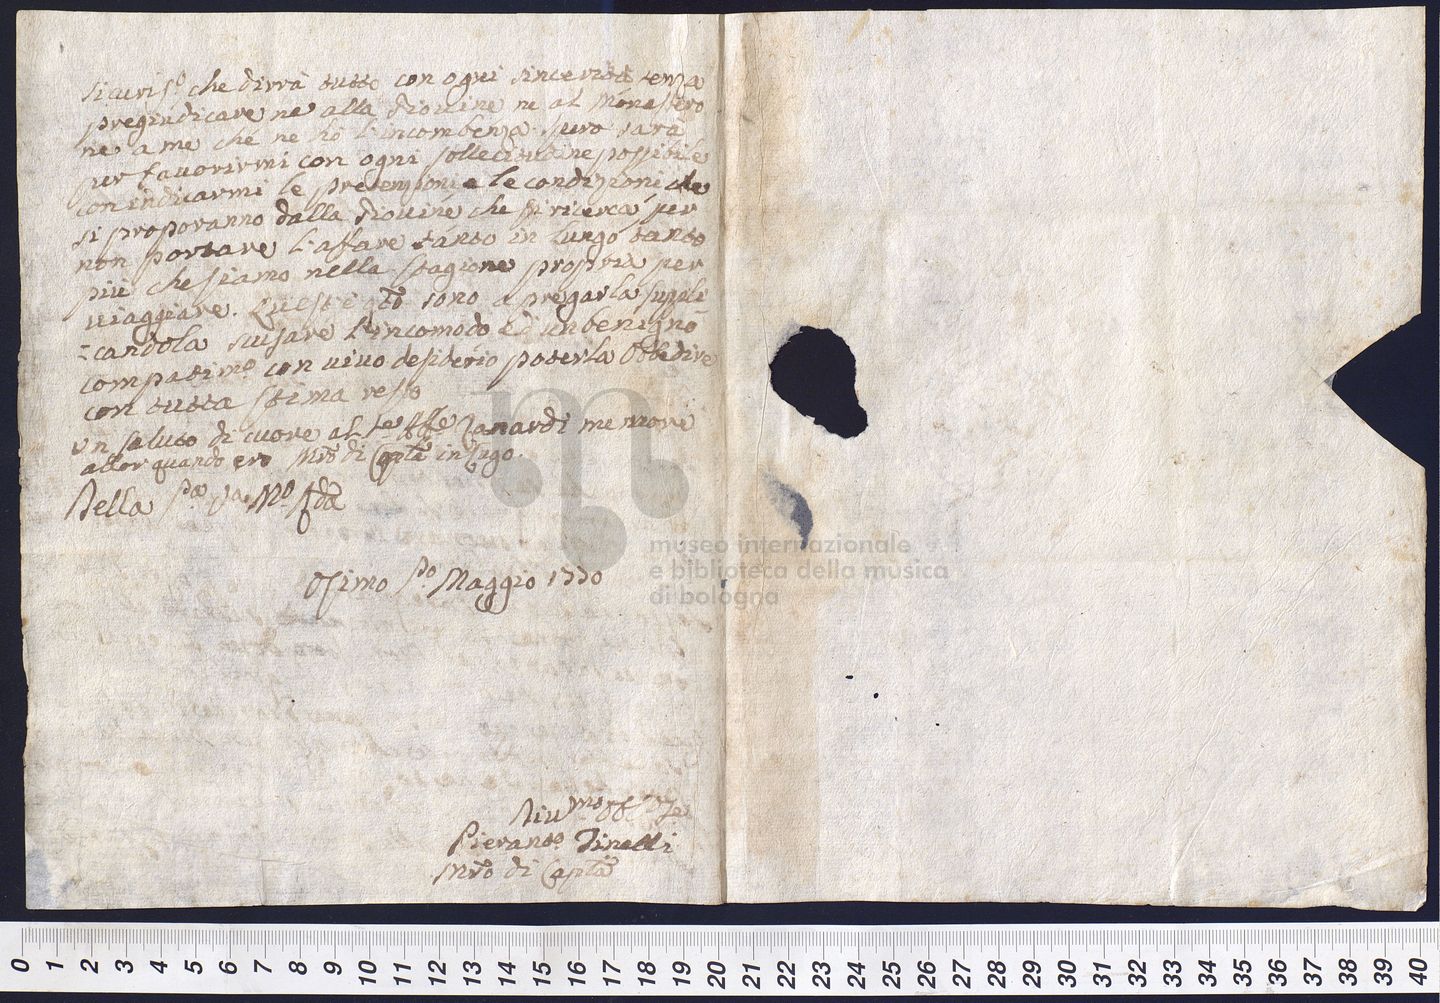 sicuris.º che dirrà tutto con ogni sincerità senza
pregiudicare ne alla Giovine ne al Monastero
ne a me che ne hò l'incombenza. Puro sarà
per favorirmi con ogni sollecitudine possibile
con indicarmi le pretenzioni e le condizioni che
si proporanno dalla Giovine che si ricerca per
non portare l'affare tanto in lungo tanto
più che siamo nella stagione propria per
viaggiare. Quest'è q.to sono a pregarla suppli
-candola scusare l'incomodo ed un benigno
compatim.º con vivo desiderio poterla Obbedire
con tutta stima resto
Un saluto di cuore al Zanardi memore
allor quando ero M.ro di Cap.la in Lugo.
Della
Osimo p.º Maggio 1770
museo internazionale
e biblioteca della musica
di bologna
Pierant.º Pinelli
M.ro di Cap.la
0 1 2 3 4 5 6 7 8 9 10 11 12 13 14 15 16 17 18 19 20 21 22 23 24 25 26 27 28 29 30 31 32 33 34 35 36 37 38 39 40